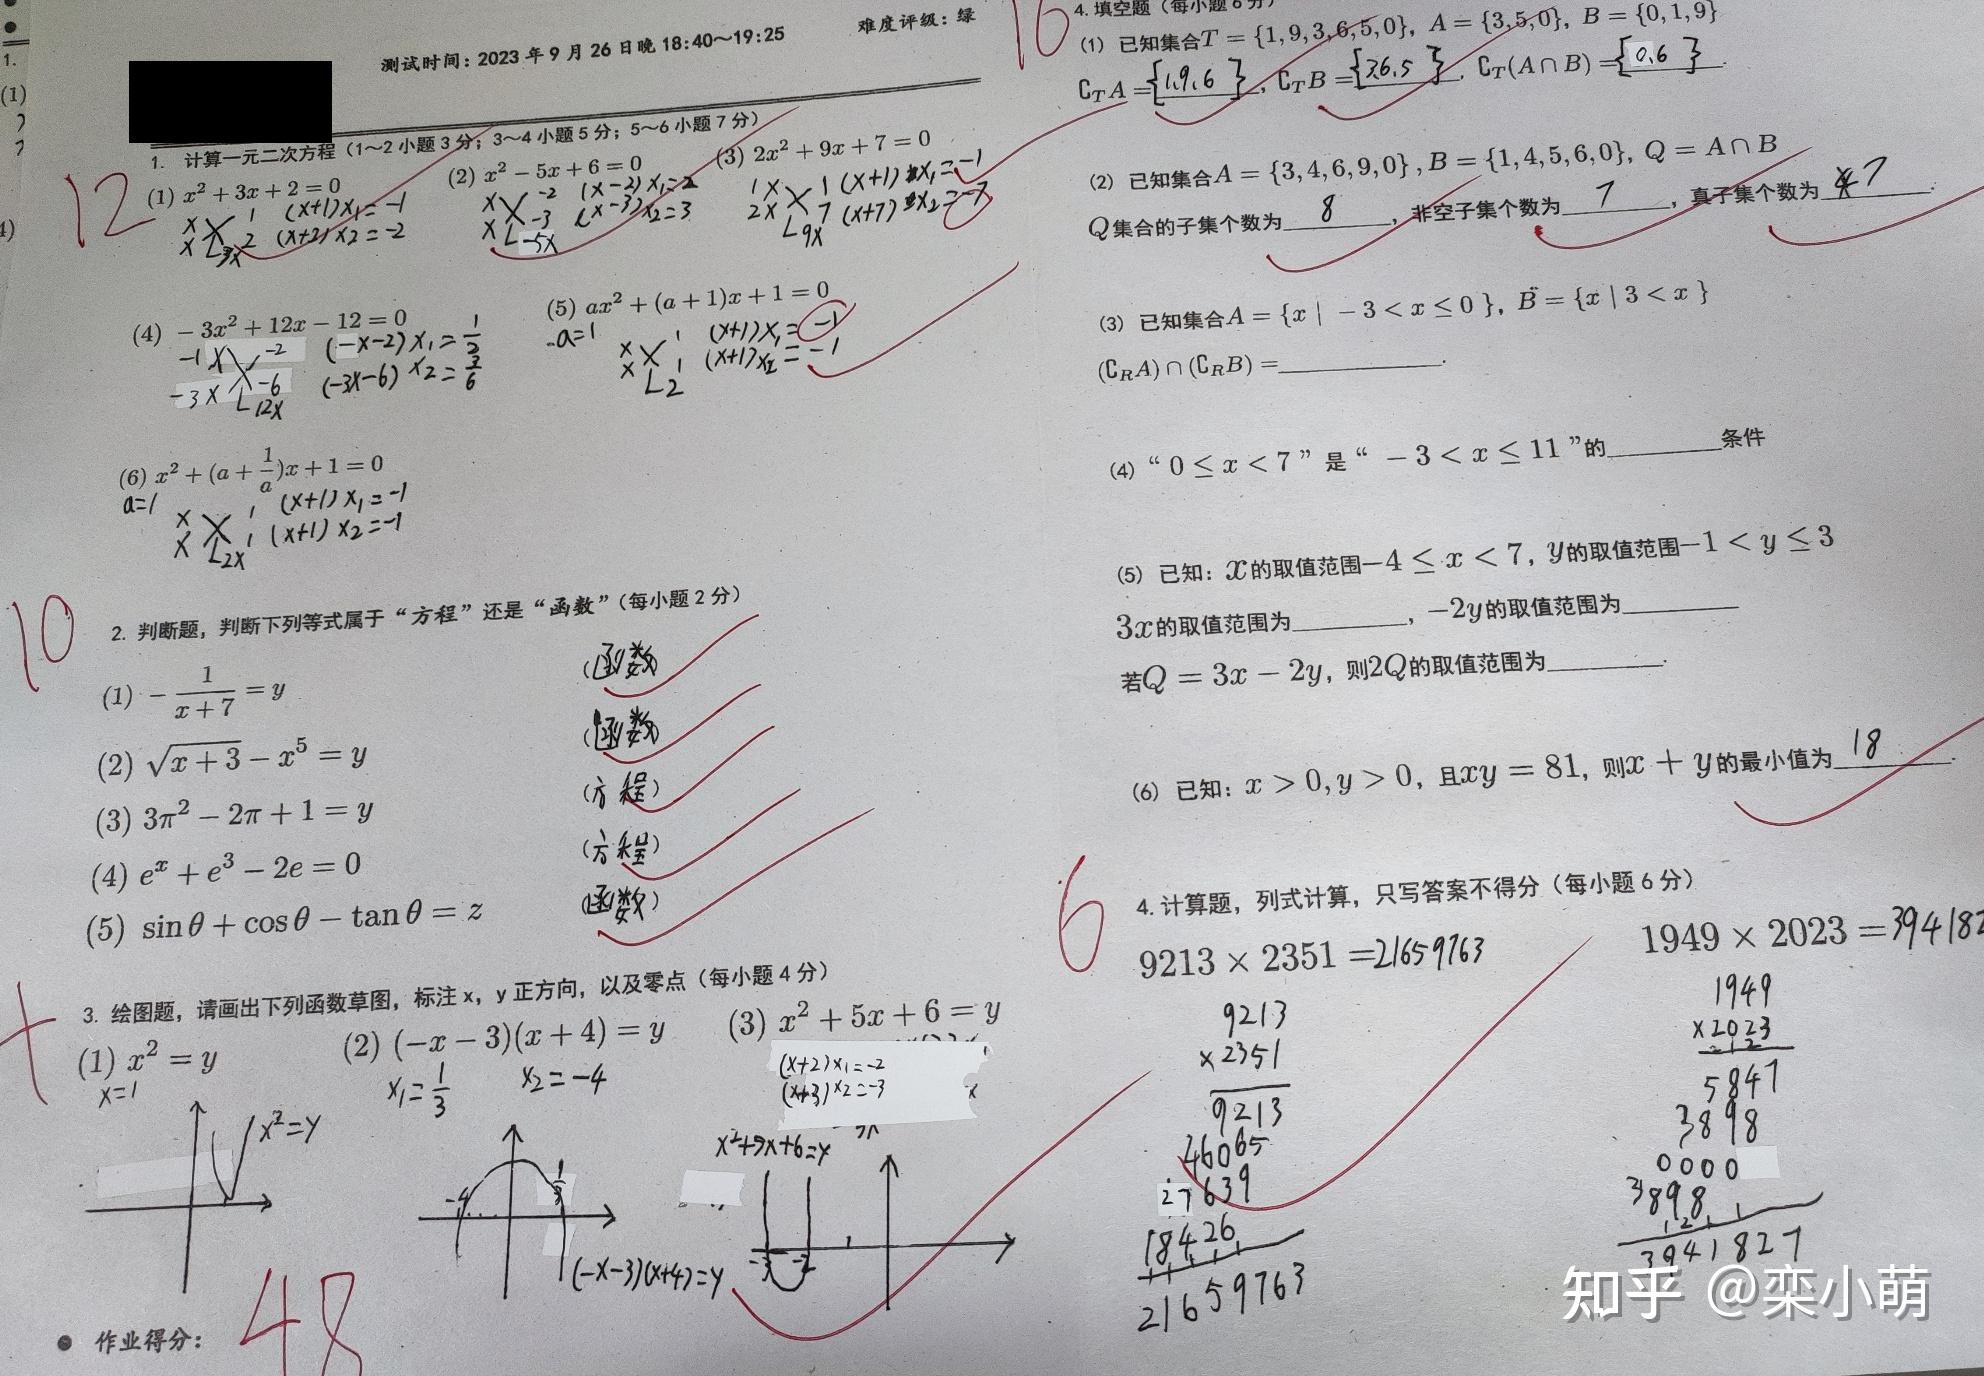 测试时间：2023年9月26日晚18:40～19:25
难度评级：绿
1. 计算一元二次方程（1～2小题3分；3～4小题5分；5～6小题7分）
12
(1) x² + 3x + 2 = 0
x 1 (x+1) x₁=-1
x 2 (x+2) x₂=-2
3x
(2) x² − 5x + 6 = 0
x -2 (x-2) x₁=2
x -3 (x-3) x₂=3
-5x
(3) 2x² + 9x + 7 = 0
1x 1 (x+1) x₁=-1
2x 7 (x+7) x₂=-7
9x
(4) −3x² + 12x − 12 = 0
-1x -2 (-x-2) x₁=1/2
-3x -6 (-3x-6) x₂=3/6
12x
(5) ax² + (a + 1)x + 1 = 0
a=1
x 1 (x+1) x₁=-1
x 1 (x+1) x₂=-1
2
(6) x² + (a + 1/a)x + 1 = 0
a=1
x 1 (x+1) x₁=-1
x 1 (x+1) x₂=-1
2x
10
2. 判断题，判断下列等式属于“方程”还是“函数”（每小题2分）
(1) − 1/(x + 7) = y （函数）
(2) √(x + 3) − x⁵ = y （函数）
(3) 3π² − 2π + 1 = y （方程）
(4) eˣ + e³ − 2e = 0 （方程）
(5) sinθ + cosθ − tanθ = z （函数）
3. 绘图题，请画出下列函数草图，标注x，y正方向，以及零点（每小题4分）
(1) x² = y
x=1
x²=y
(2) (−x − 3)(x + 4) = y
x₁=1/3 x₂=-4
-4 1/3
(-x-3)(x+4)=y
(3) x² + 5x + 6 = y
(x+2) x₁=-2
(x+3) x₂=-3
x²+5x+6=y
-3 -2
● 作业得分：
48
16
4. 填空题（每小题6分）
(1) 已知集合T = {1,9,3,6,5,0}，A = {3,5,0}，B = {0,1,9}
∁_T A = {1.9.6}，∁_T B = {3.6.5}，∁_T(A∩B) = {0.6}.
(2) 已知集合A = {3,4,6,9,0}，B = {1,4,5,6,0}，Q = A∩B
Q集合的子集个数为 8 ，非空子集个数为 7 ，真子集个数为 7 .
(3) 已知集合A = {x | −3 < x ≤ 0}，B = {x | 3 < x}
(∁_R A)∩(∁_R B) =________.
(4) “0 ≤ x < 7”是“−3 < x ≤ 11”的________条件
(5) 已知：x的取值范围−4 ≤ x < 7，y的取值范围−1 < y ≤ 3
3x的取值范围为________，−2y的取值范围为________
若Q = 3x − 2y，则2Q的取值范围为________.
(6) 已知：x > 0, y > 0，且xy = 81，则x + y的最小值为 18 .
6
4. 计算题，列式计算，只写答案不得分（每小题6分）
9213 × 2351 = 21659763
9213
×2351
9213
46065
27639
18426
21659763
1949 × 2023 = 394182
1949
×2023
5847
3898
0000
3898
3941827
知乎 @栾小萌